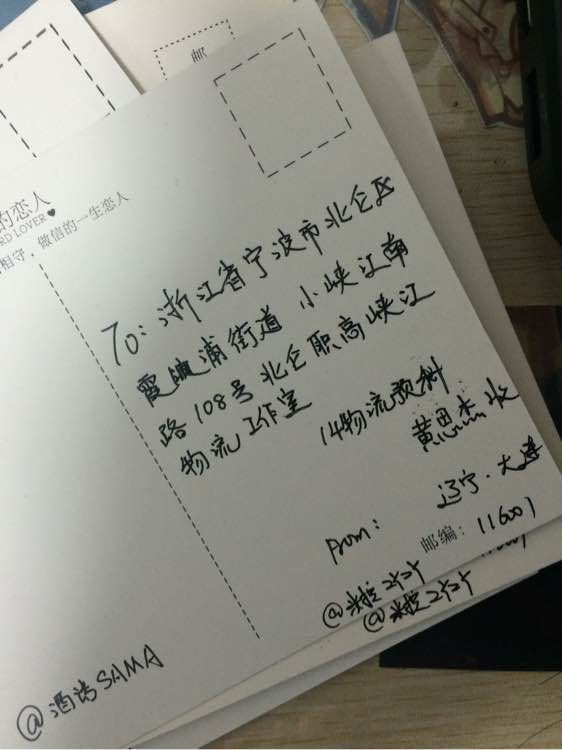 邮
的恋人
RD LOVER
相守，做信的一生恋人
TO: 浙江省宁波市北仑区
霞浦街道 小峡江南
路108号 北仑职高峡江
物流工作室
14物流预科
黄恩杰 收
辽宁·大连
From:
邮编: 116001
@SAMA